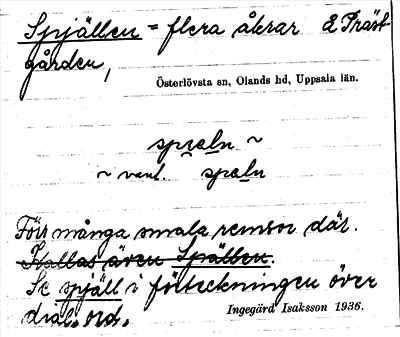 Spjällen = flera åkrar å Präst-
gården,
Österlövsta sn, Olands hd, Uppsala län.
~ vanl.
För många smala remsor där.
Kallas även Spjällen.
Se spjäll i förteckningen över
dial. ord.
Ingegärd Isaksson 1936.